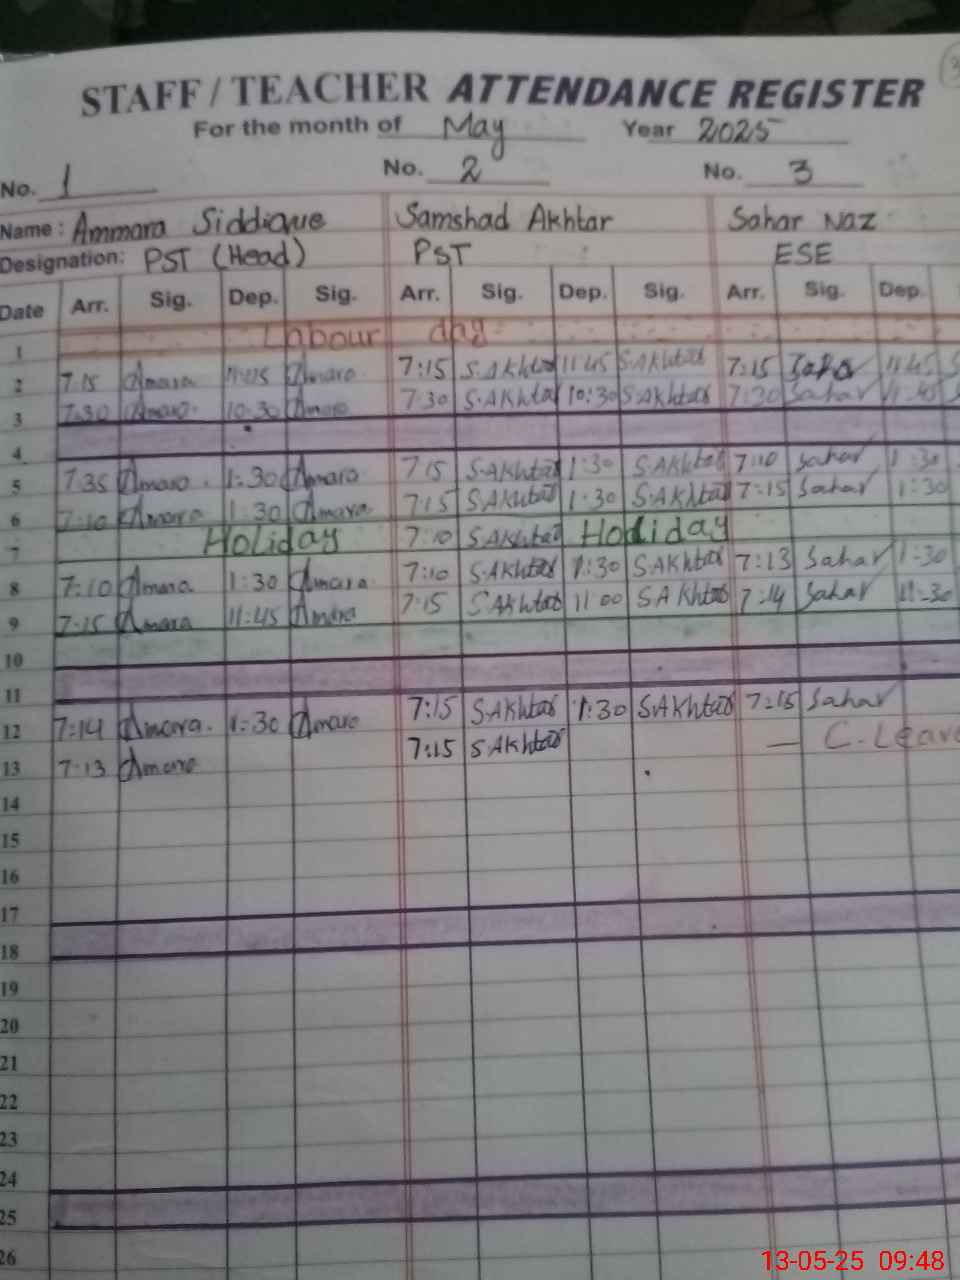 STAFF / TEACHER ATTENDANCE REGISTER
For the month of May Year 2025
No. 1 No. 2 No. 3
Name: Ammara Siddique Samshad Akhtar Sahar Naz
Designation: PST (Head) PST ESE
Date Arr. Sig. Dep. Sig. Arr. Sig. Dep. Sig. Arr. Sig. Dep.
1 Labour day
2 7:15 Amara 11:45 Amara 7:15 S.Akhtar 11:45 S.Akhtar 7:15 Sahar 11:45
3 7:30 Amara 10:30 Amara 7:30 S.Akhtar 10:30 S.Akhtar 7:30 Sahar 11:45
4
5 7:35 Amara 1:30 Amara 7:15 S.Akhtar 1:30 S.Akhtar 7:10 Sahar 1:30
6 7:10 Amara 1:30 Amara 7:15 S.Akhtar 1:30 S.Akhtar 7:15 Sahar 1:30
7 Holiday 7:10 S.Akhtar Holiday
8 7:10 Amara 1:30 Amara 7:10 S.Akhtar 1:30 S.Akhtar 7:13 Sahar 1:30
9 7:15 Amara 11:45 Amara 7:15 S.Akhtar 11:00 S.Akhtar 7:14 Sahar 11:30
10
11
12 7:14 Amara. 1:30 Amara 7:15 S.Akhtar 1:30 S.Akhtar 7:15 Sahar
13 7:13 Amara 7:15 S.Akhtar — C.Leave
14
15
16
17
18
19
20
21
22
23
24
25
26
13-05-25 09:48